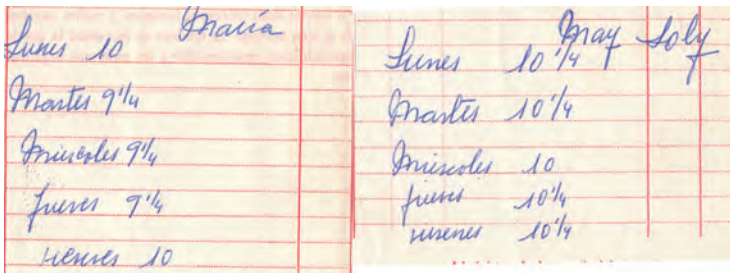 María
Lunes 10
Martes 9 1/4
Miercoles 9 1/4
Jueves 9 1/4
Viernes 10
May Soly
Lunes 10 1/4
Martes 10 1/4
Miercoles 10
Jueves 10 1/4
viernes 10 1/4